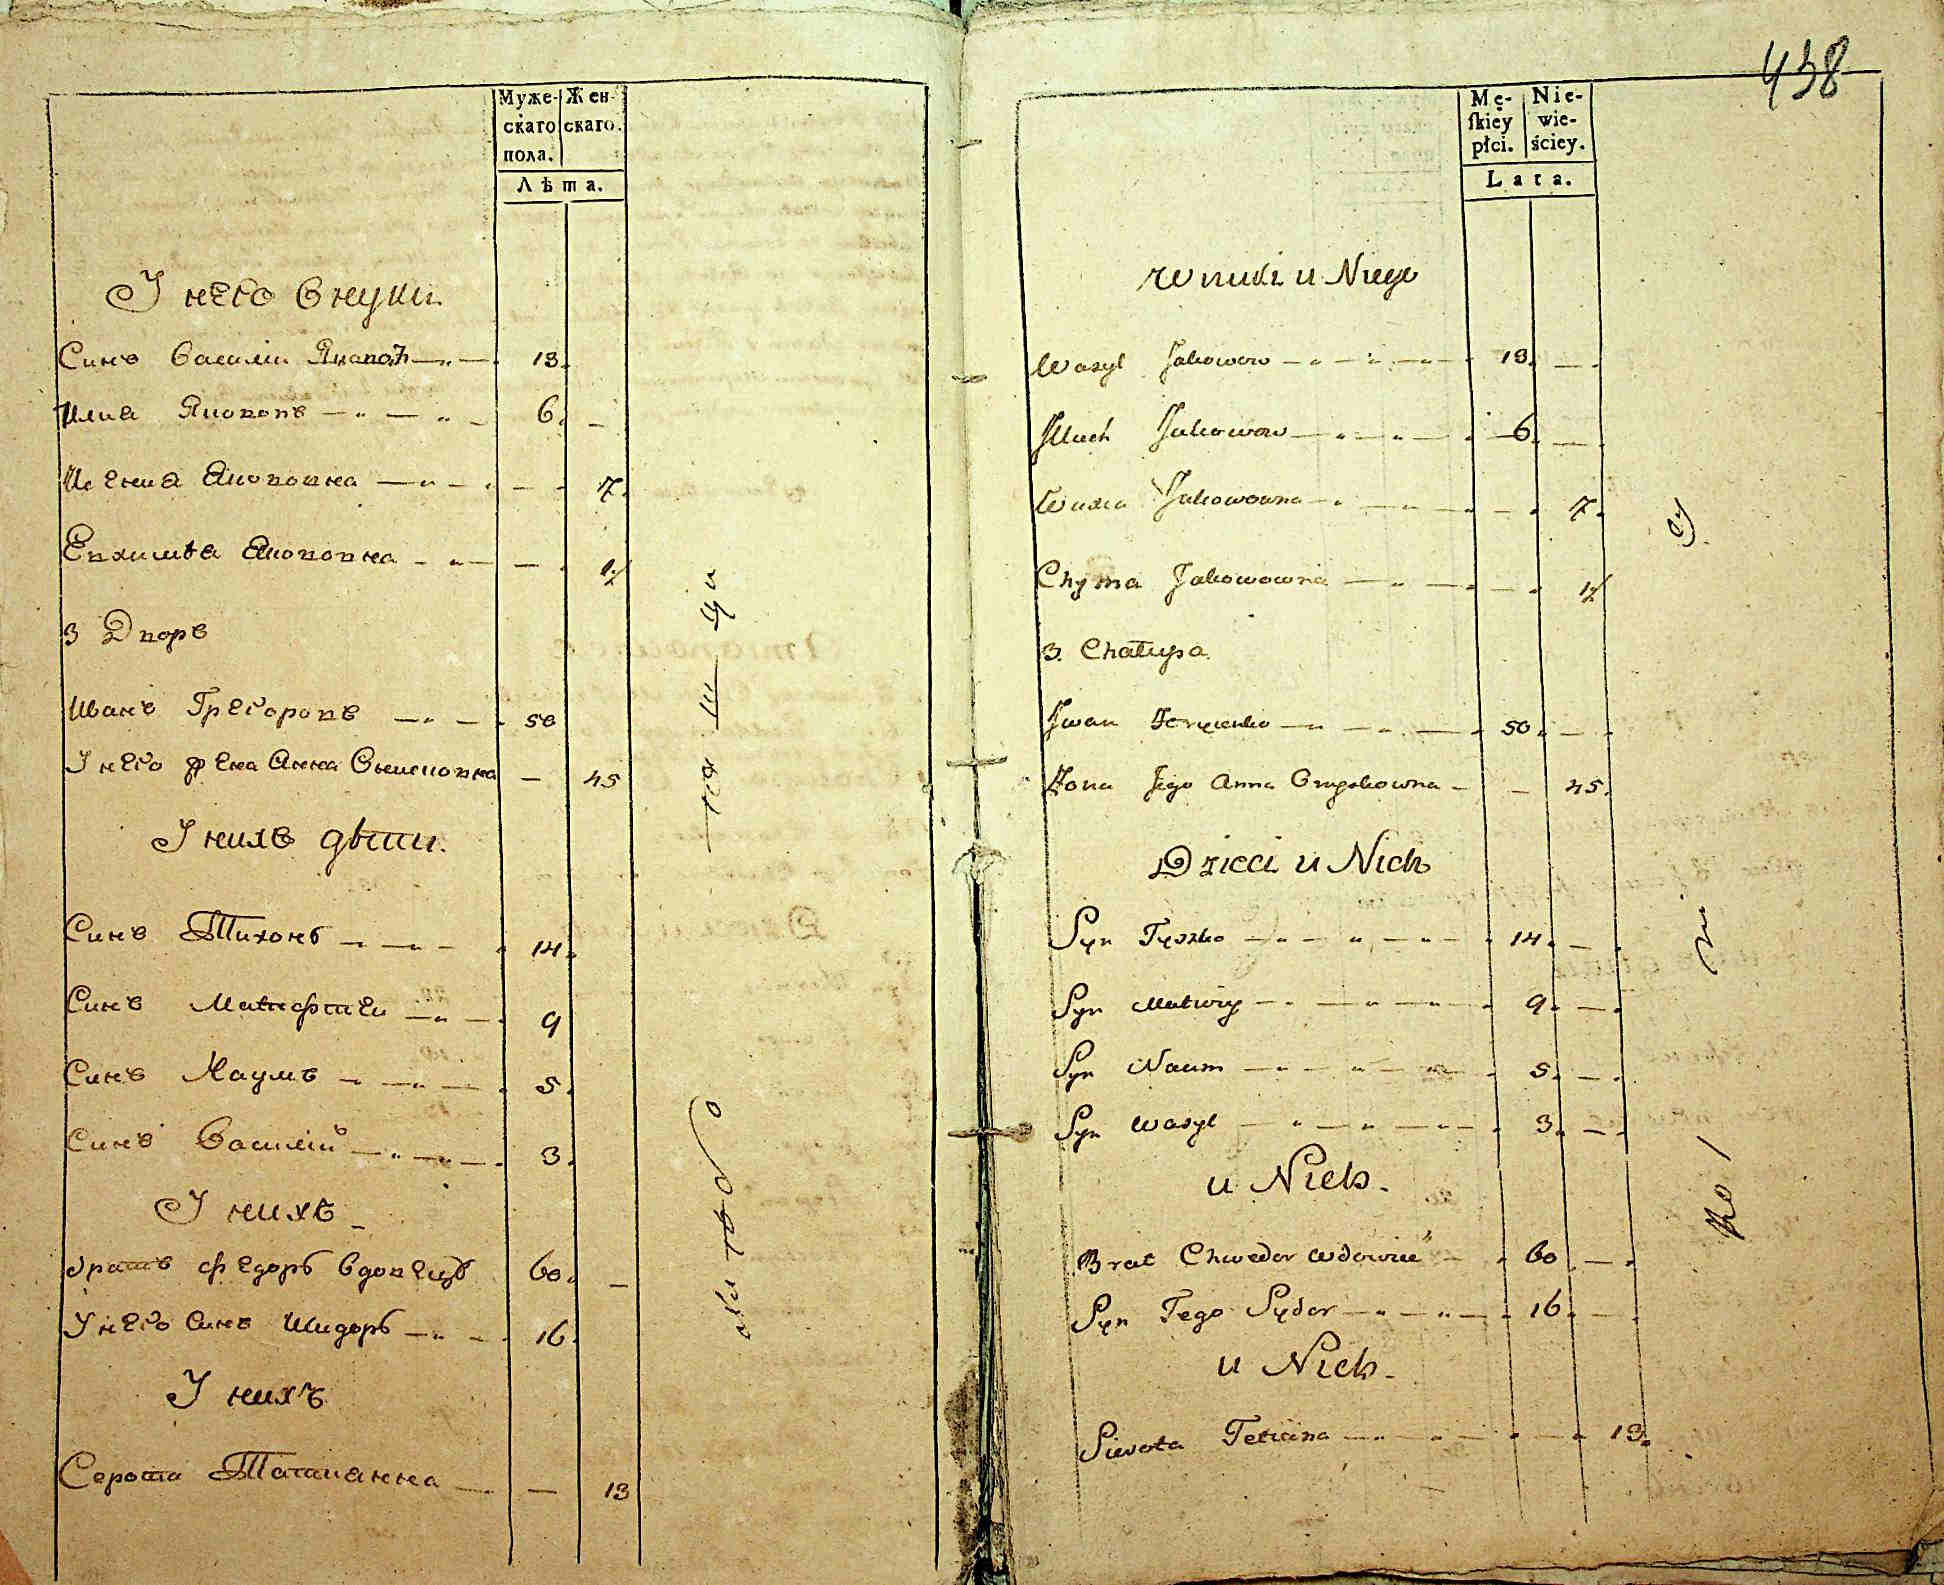 Муже- Жен-
скаго скаго.
пола.
Лѣта.
У него внуки
Синъ Василiи Яковов 13.
Илия Якововъ 6.
Якововна 7.
Евхимѣа Якововна 1/2
3 Дворъ
Иванъ Грегоровъ 50
У него жена Анна 45
У нихъ дѣти.
Синъ Тихонъ 14.
Синъ Матфтеи 9
Синъ Наумъ 5.
Синъ Василiй 3.
У нихъ
братъ Федоръ вдовецъ 60.
У него синъ Шидоръ 16.
У нихъ
Серота Татианна 13
438
Mę- Nie-
ſkiey wie-
płci. ściey.
Lata.
Wnuki u Niego
Wasyl Jakowow 13.
Illuch Jakowow 6.
Jakowowna 7.
Chyma Jakowowna 1/2
3. Chałupa.
Jwan 50.
Żona Jego Anna 45.
Dzieci u Nich
Syn Tyszko 14.
Syn Matwiy 9.
Syn Naum 5.
Syn Wasyl 3.
u Nich.
Brat Chwedor wdowiec 60
Syn Tego Sydor 16.
u Nich.
Sierota Teticina 13.